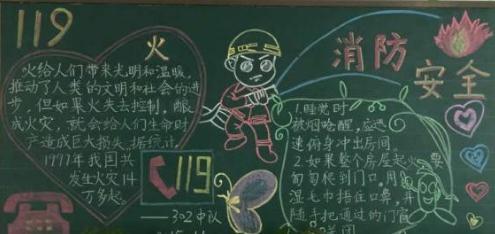 119
火
火给人们带来光明和温暖,
推动了人类的文明和社会的进
步,但如果火失去控制,酿
成火灾,就会给人们生命财
产造成巨大损失。据统计,
1997年我国共
发生火灾14
万多起。
119
——302中队
消防
安全
1.睡觉时
被烟呛醒,应迅
速俯身冲出房间。
2.如果整个房屋起火,要
匍匐爬到门口,用
湿毛巾捂住口鼻,并
随手把通过的门窗
关闭